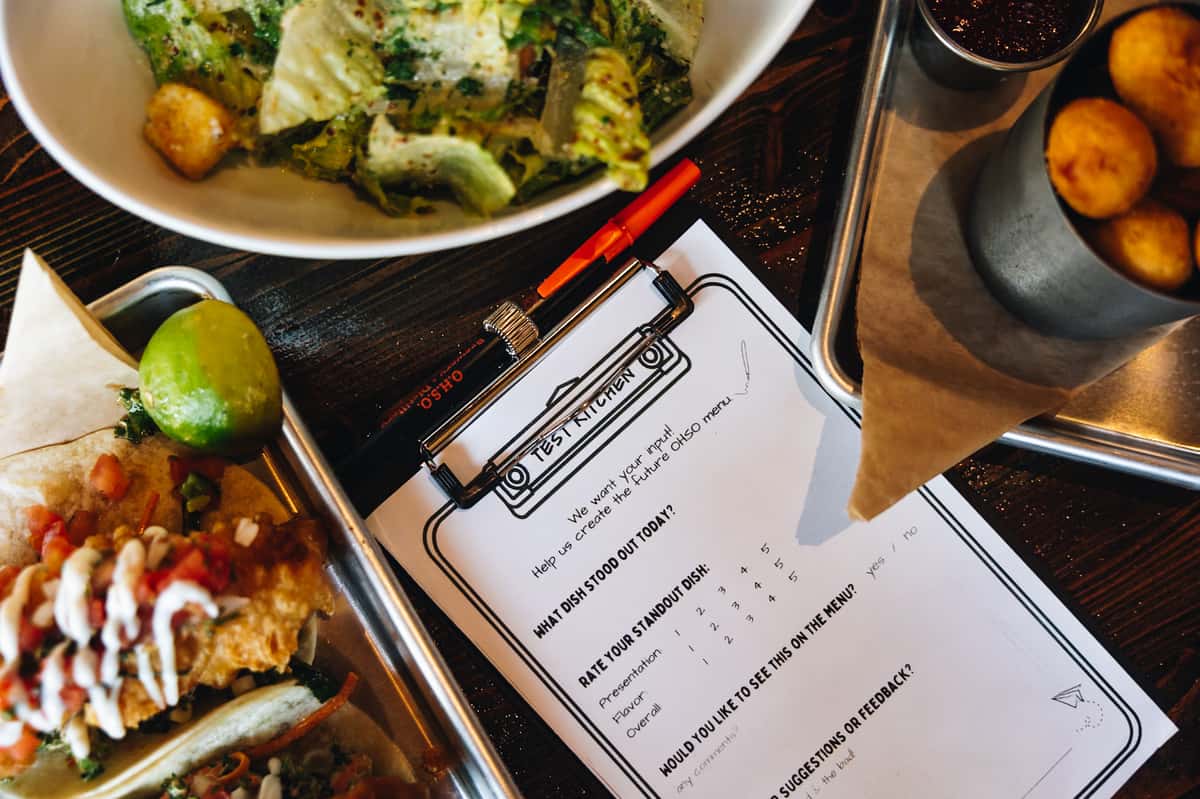 O.H.S.O.
TEST KITCHEN
We want your input!
Help us create the future OHSO menu
WHAT DISH STOOD OUT TODAY?
RATE YOUR STANDOUT DISH:
Presentation 1 2 3 4 5
Flavor 1 2 3 4 5
Overall 1 2 3 4 5
WOULD YOU LIKE TO SEE THIS ON THE MENU? yes / no
any comments?
SUGGESTIONS OR FEEDBACK?
is the bad